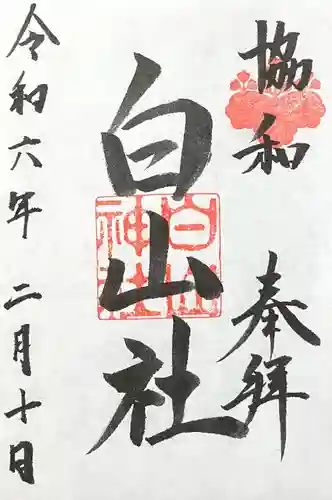 協和
奉拝
白山社
白山神社
令和六年 二月十日